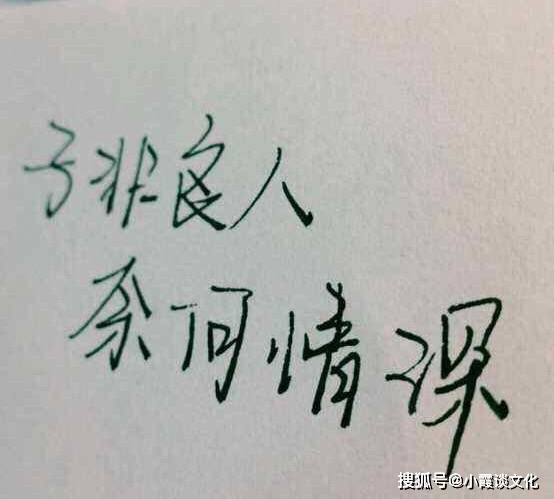 子非良人
奈何情深
搜狐号@小霞谈文化